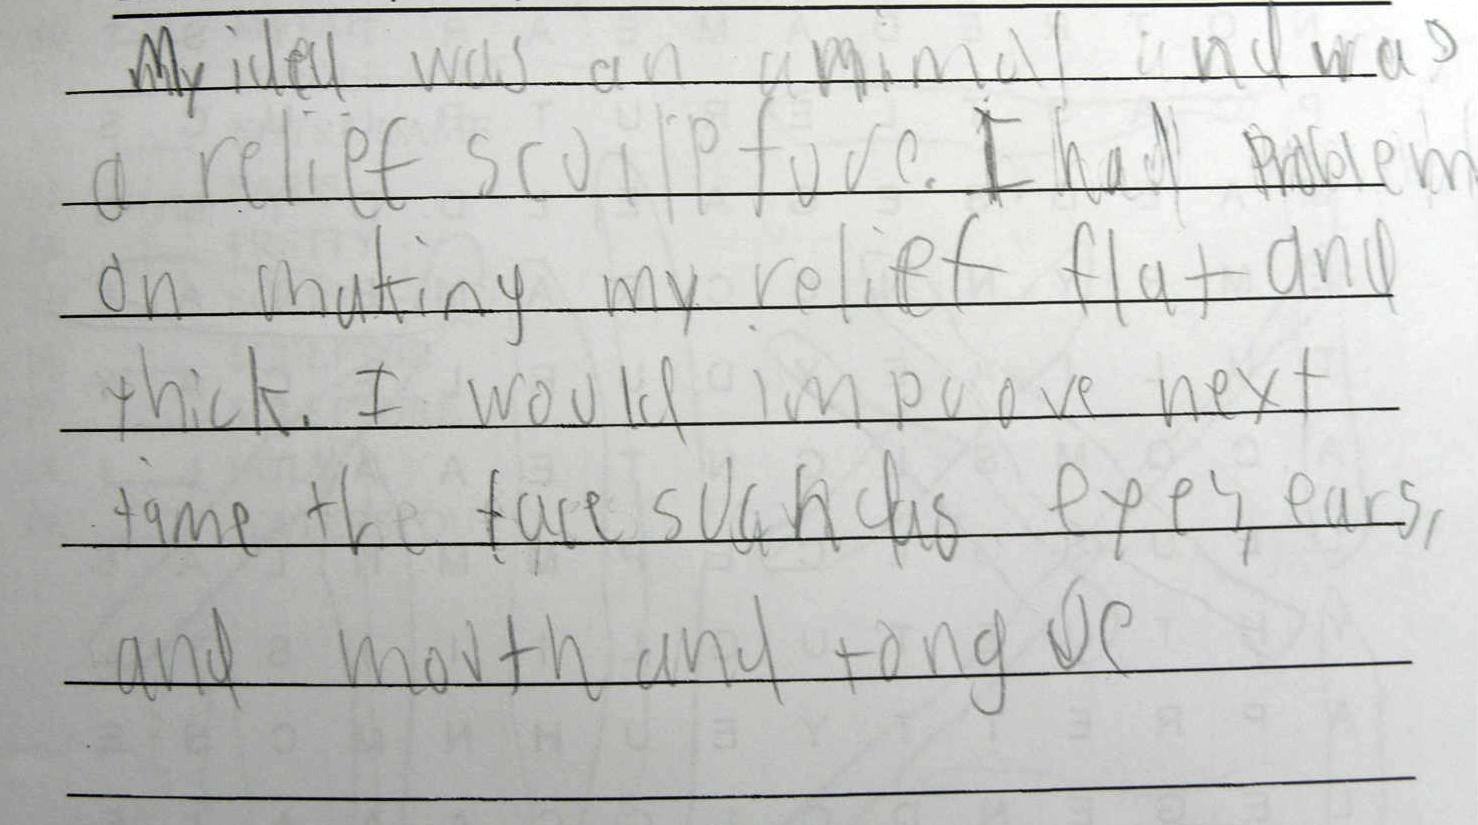 My idea was an amimal and was
a relief scuilpture. I had problem
on making my relief flat and
thick. I would impuove next
tame the face suchas eyes, ears,
and mouth and tongue